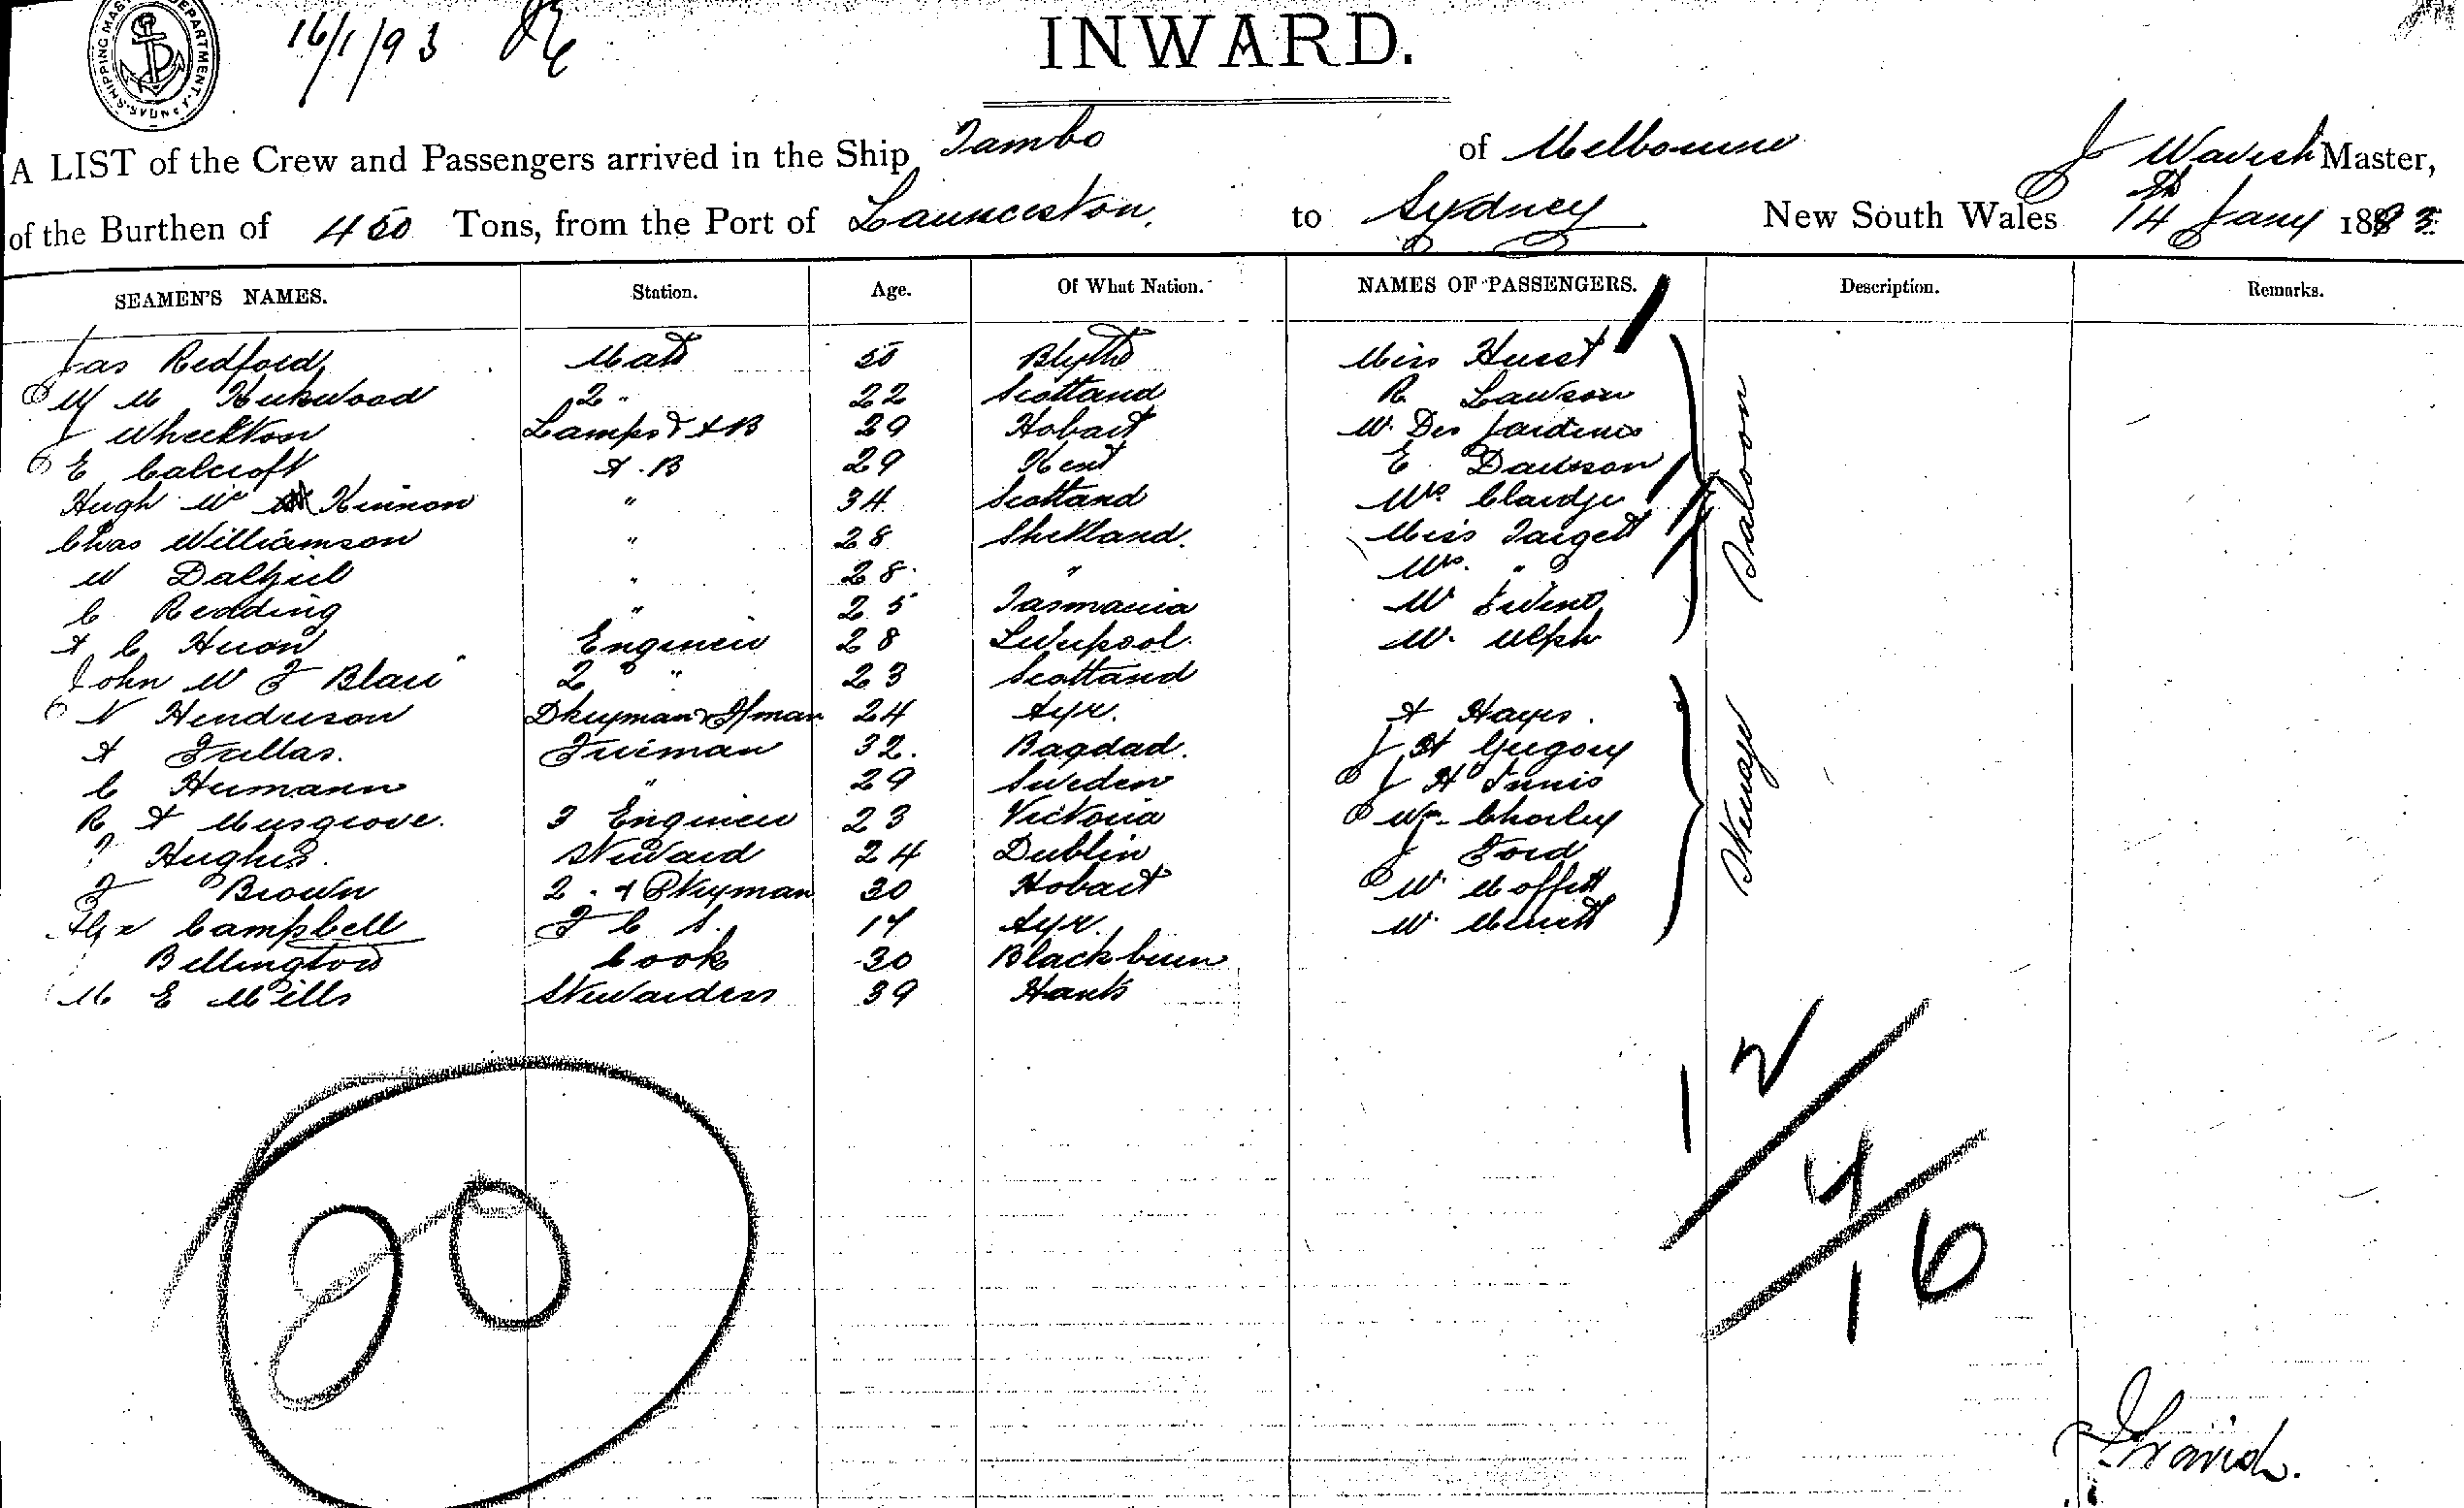 SHIPPING MASTER'S DEPARTMENT. SYDNEY
16/1/93
INWARD.
A LIST of the Crew and Passengers arrived in the Ship Tambo of Melbourne J Wavish Master,
of the Burthen of 450 Tons, from the Port of Launceston, to Sydney New South Wales 14th Jany 1893
SEAMEN'S NAMES. Station. Age. Of What Nation. NAMES OF PASSENGERS. Description. Remarks.
Jas Redford Mate 50 Blythe Miss Hurst
W M Kirkwood 2 " 22 Scotland R Lawson
J Wheelton Lamps & AB 29 Hobart W. Des Jardines
E Calcroft A.B 29 Kent E Dawson
Hugh Mc Kinnon " 34 Scotland Mrs Claridge
Chas Williamson " 28 Shetland. Miss Target
W Dalziel " 28 " Mrs. "
C Reading " 25 Tasmania W
A C Huon Engineer 28 Liverpool. W. Ulph
Saloon
John W F Blair 2 " 23 Scotland
N Henderson Dkeyman & Fman 24 Ayr. A Hayes.
A Fullas. Fireman 32. Bagdad. J H Gregory
C Heimann " 29 Sweden J H Innis
R A Musgrove. 3 Engineer 23 Victoria Wm Chorley
? Hughes. Steward 24 Dublin J Ford
F Brown 2 " & Pkeyman 30 Hobart W. Moffitt
Alex Campbell F C S. 17 Ayr. W. Merritt
Steerage
Bellington Cook 30 Blackburn
M E Mills Stewardess 39 Hants
20
12
4
16
J Wavish.